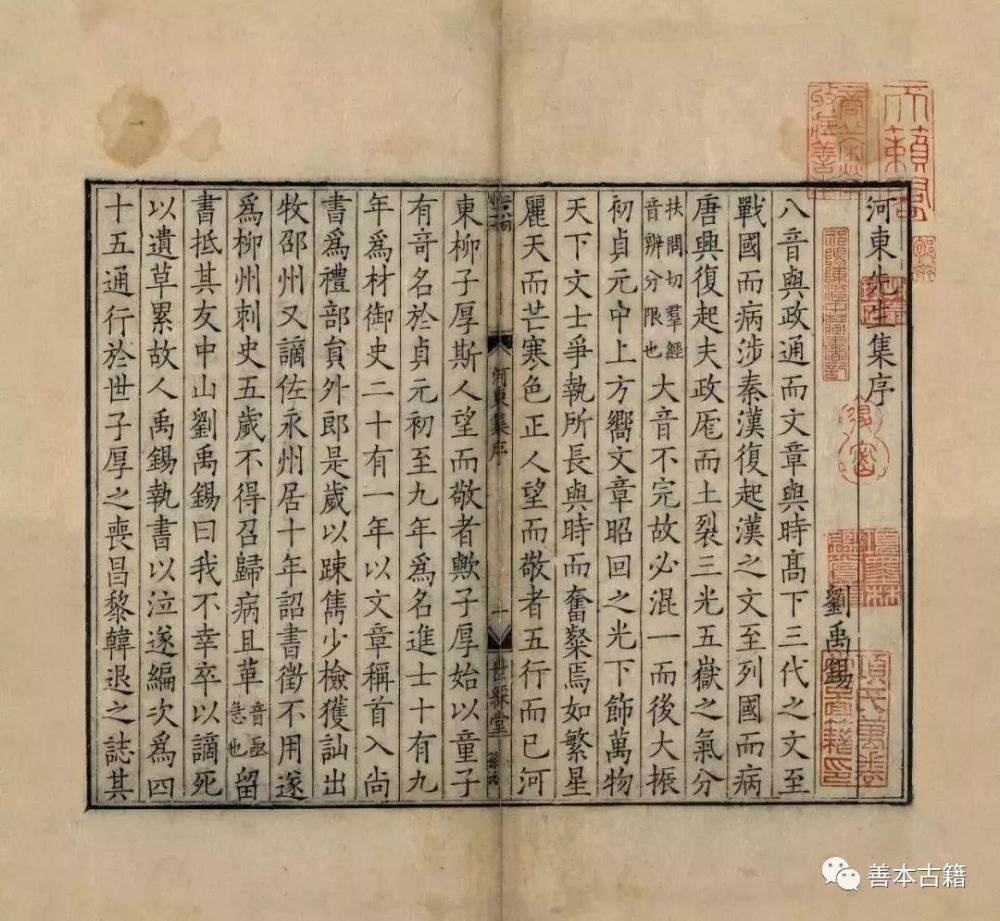 河東先生集序
劉禹錫
八音與政通而文章與時髙下三代之文至
戰國而病涉秦漢復起漢之文至列國而病
唐興復起夫政厖而土裂三光五嶽之氣分
扶問切羣經
音辨分限也
大音不完故必混一而後大振
初貞元中上方嚮文章昭回之光下飾萬物
天下文士爭執所長與時而奮粲焉如繁星
麗天而芒寒色正人望而敬者五行而已河
河東集序
一
世綵堂
東柳子厚斯人望而敬者歟子厚始以童子
有奇名於貞元初至九年爲名進士十有九
年爲材御史二十有一年以文章稱首入尚
書爲禮部貟外郎是歲以踈雋少檢獲訕出
牧邵州又謫佐永州居十年詔書徵不用遂
爲柳州刺史五歲不得召歸病且革
音亟
急也
留
書抵其友中山劉禹錫曰我不幸卒以謫死
以遺草累故人禹錫執書以泣遂編次爲四
十五通行於世子厚之喪昌黎韓退之誌其
善本古籍